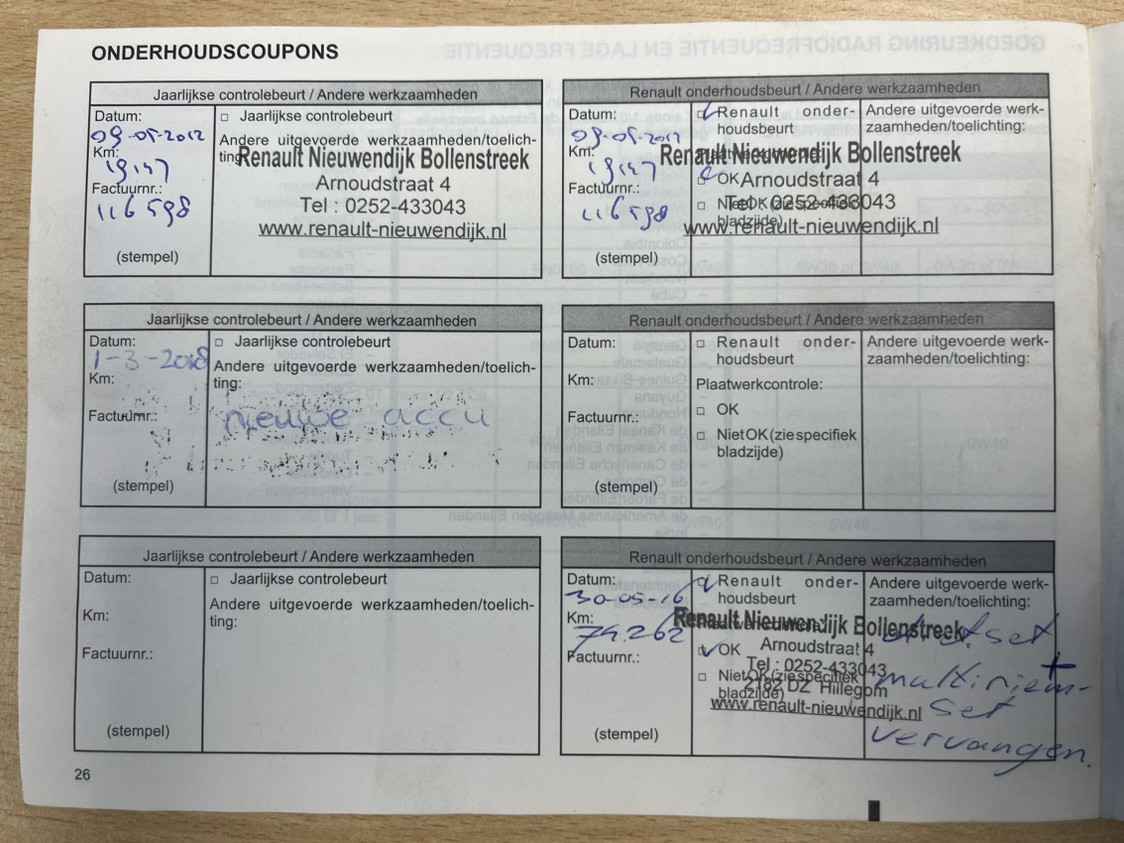 ONDERHOUDSCOUPONS
Jaarlijkse controlebeurt / Andere werkzaamheden
Datum:
09-05-2012
Km:
19147
Factuurnr.:
116598
(stempel)
□ Jaarlijkse controlebeurt
Andere uitgevoerde werkzaamheden/toelich-
ting:
Renault Nieuwendijk Bollenstreek
Arnoudstraat 4
Tel : 0252-433043
www.renault-nieuwendijk.nl
Renault onderhoudsbeurt / Andere werkzaamheden
Datum:
09-05-2012
Km:
19147
Factuurnr.:
116598
(stempel)
Renault onder-
houdsbeurt
OK
Niet OK (zie specifiek
bladzijde)
Andere uitgevoerde werk-
zaamheden/toelichting:
Renault Nieuwendijk Bollenstreek
Arnoudstraat 4
Tel : 0252-433043
www.renault-nieuwendijk.nl
Jaarlijkse controlebeurt / Andere werkzaamheden
Datum:
1-3-2018
Km:
Factuurnr.:
(stempel)
□ Jaarlijkse controlebeurt
Andere uitgevoerde werkzaamheden/toelich-
ting:
nieuwe accu
Renault onderhoudsbeurt / Andere werkzaamheden
Datum:
Km:
Factuurnr.:
(stempel)
□ Renault onder-
houdsbeurt
Plaatwerkcontrole:
□ OK
□ Niet OK (zie specifiek
bladzijde)
Andere uitgevoerde werk-
zaamheden/toelichting:
Jaarlijkse controlebeurt / Andere werkzaamheden
Datum:
Km:
Factuurnr.:
(stempel)
□ Jaarlijkse controlebeurt
Andere uitgevoerde werkzaamheden/toelich-
ting:
Renault onderhoudsbeurt / Andere werkzaamheden
Datum:
30-05-16
Km:
74.262
Factuurnr.:
(stempel)
Renault onder-
houdsbeurt
Plaatwerkcontrole:
OK
□ Niet OK (zie specifiek
bladzijde)
Andere uitgevoerde werk-
zaamheden/toelichting:
Renault Nieuwendijk Bollenstreek
Arnoudstraat 4
Tel : 0252-433043
2182 DZ Hillegom
www.renault-nieuwendijk.nl
d.r.set +
multiriem-
set
vervangen.
26